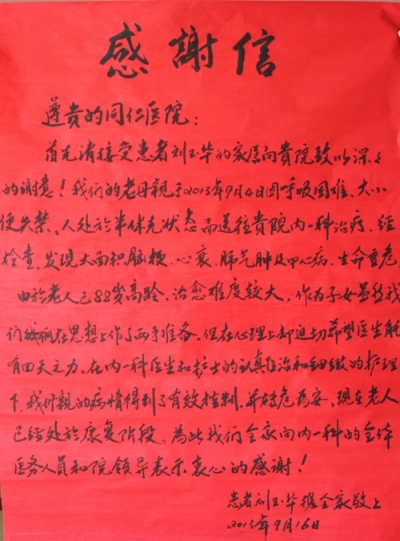 感謝信
尊贵的同仁医院：
首先请接受患者刘玉华的家属向貴院致以深深
的谢意！我们的老母親于2013年9月4日因呼吸困难、大小
便失禁、人处於半休克状态而送往貴院内一科治疗、经
检查、发现大面积脑梗、心衰、肺气肿及甲心病、生命垂危、
由於老人已88岁高龄、治愈难度较大，作为子女虽然我
们在思想上作了两手准备、但在心理上却迫切希望医生能
有回天之力、在内一科医生和护士的认真医治和细緻的护理
下、我母親的病情得到了有效控制、并转危为安、现在老人
已经处於康复阶段、為此我们全家向内一科的全体
医务人员和院领导表示衷心的感谢！
患者刘玉华携全家敬上
2013年9月16日